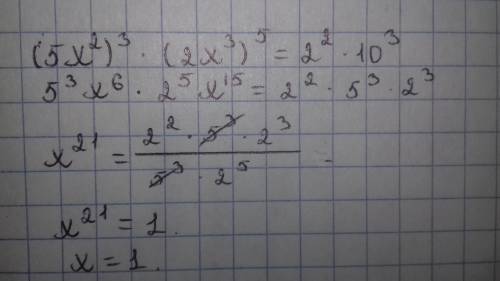 (5x²)³ · (2x³)⁵ = 2² · 10³
5³x⁶ · 2⁵x¹⁵ = 2² · 5³ · 2³
x²¹ = (2² · 5³ · 2³) / (5³ · 2⁵)
x²¹ = 1.
x = 1.